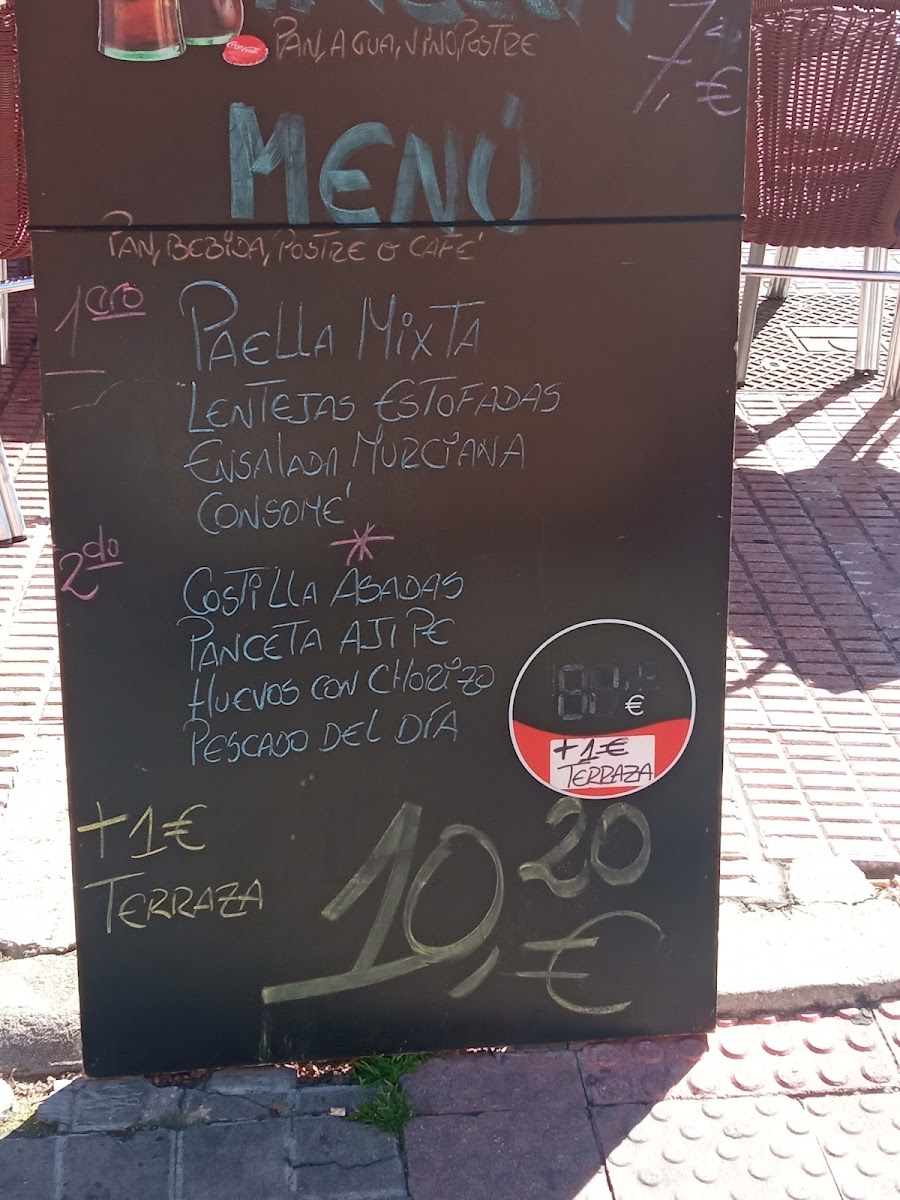 PAN, AGUA, VINO, POSTRE
7,20 €
MENÚ
PAN, BEBIDA, POSTRE O CAFÉ
1ero
PAELLA MIXTA
LENTEJAS ESTOFADAS
ENSALADA MURCIANA
CONSOMÉ
2do
COSTILLA ASADAS
PANCETA AJI PE
HUEVOS CON CHORIZO
PESCADO DEL DÍA
€
+1€
TERRAZA
+1€
TERRAZA
10,20 €